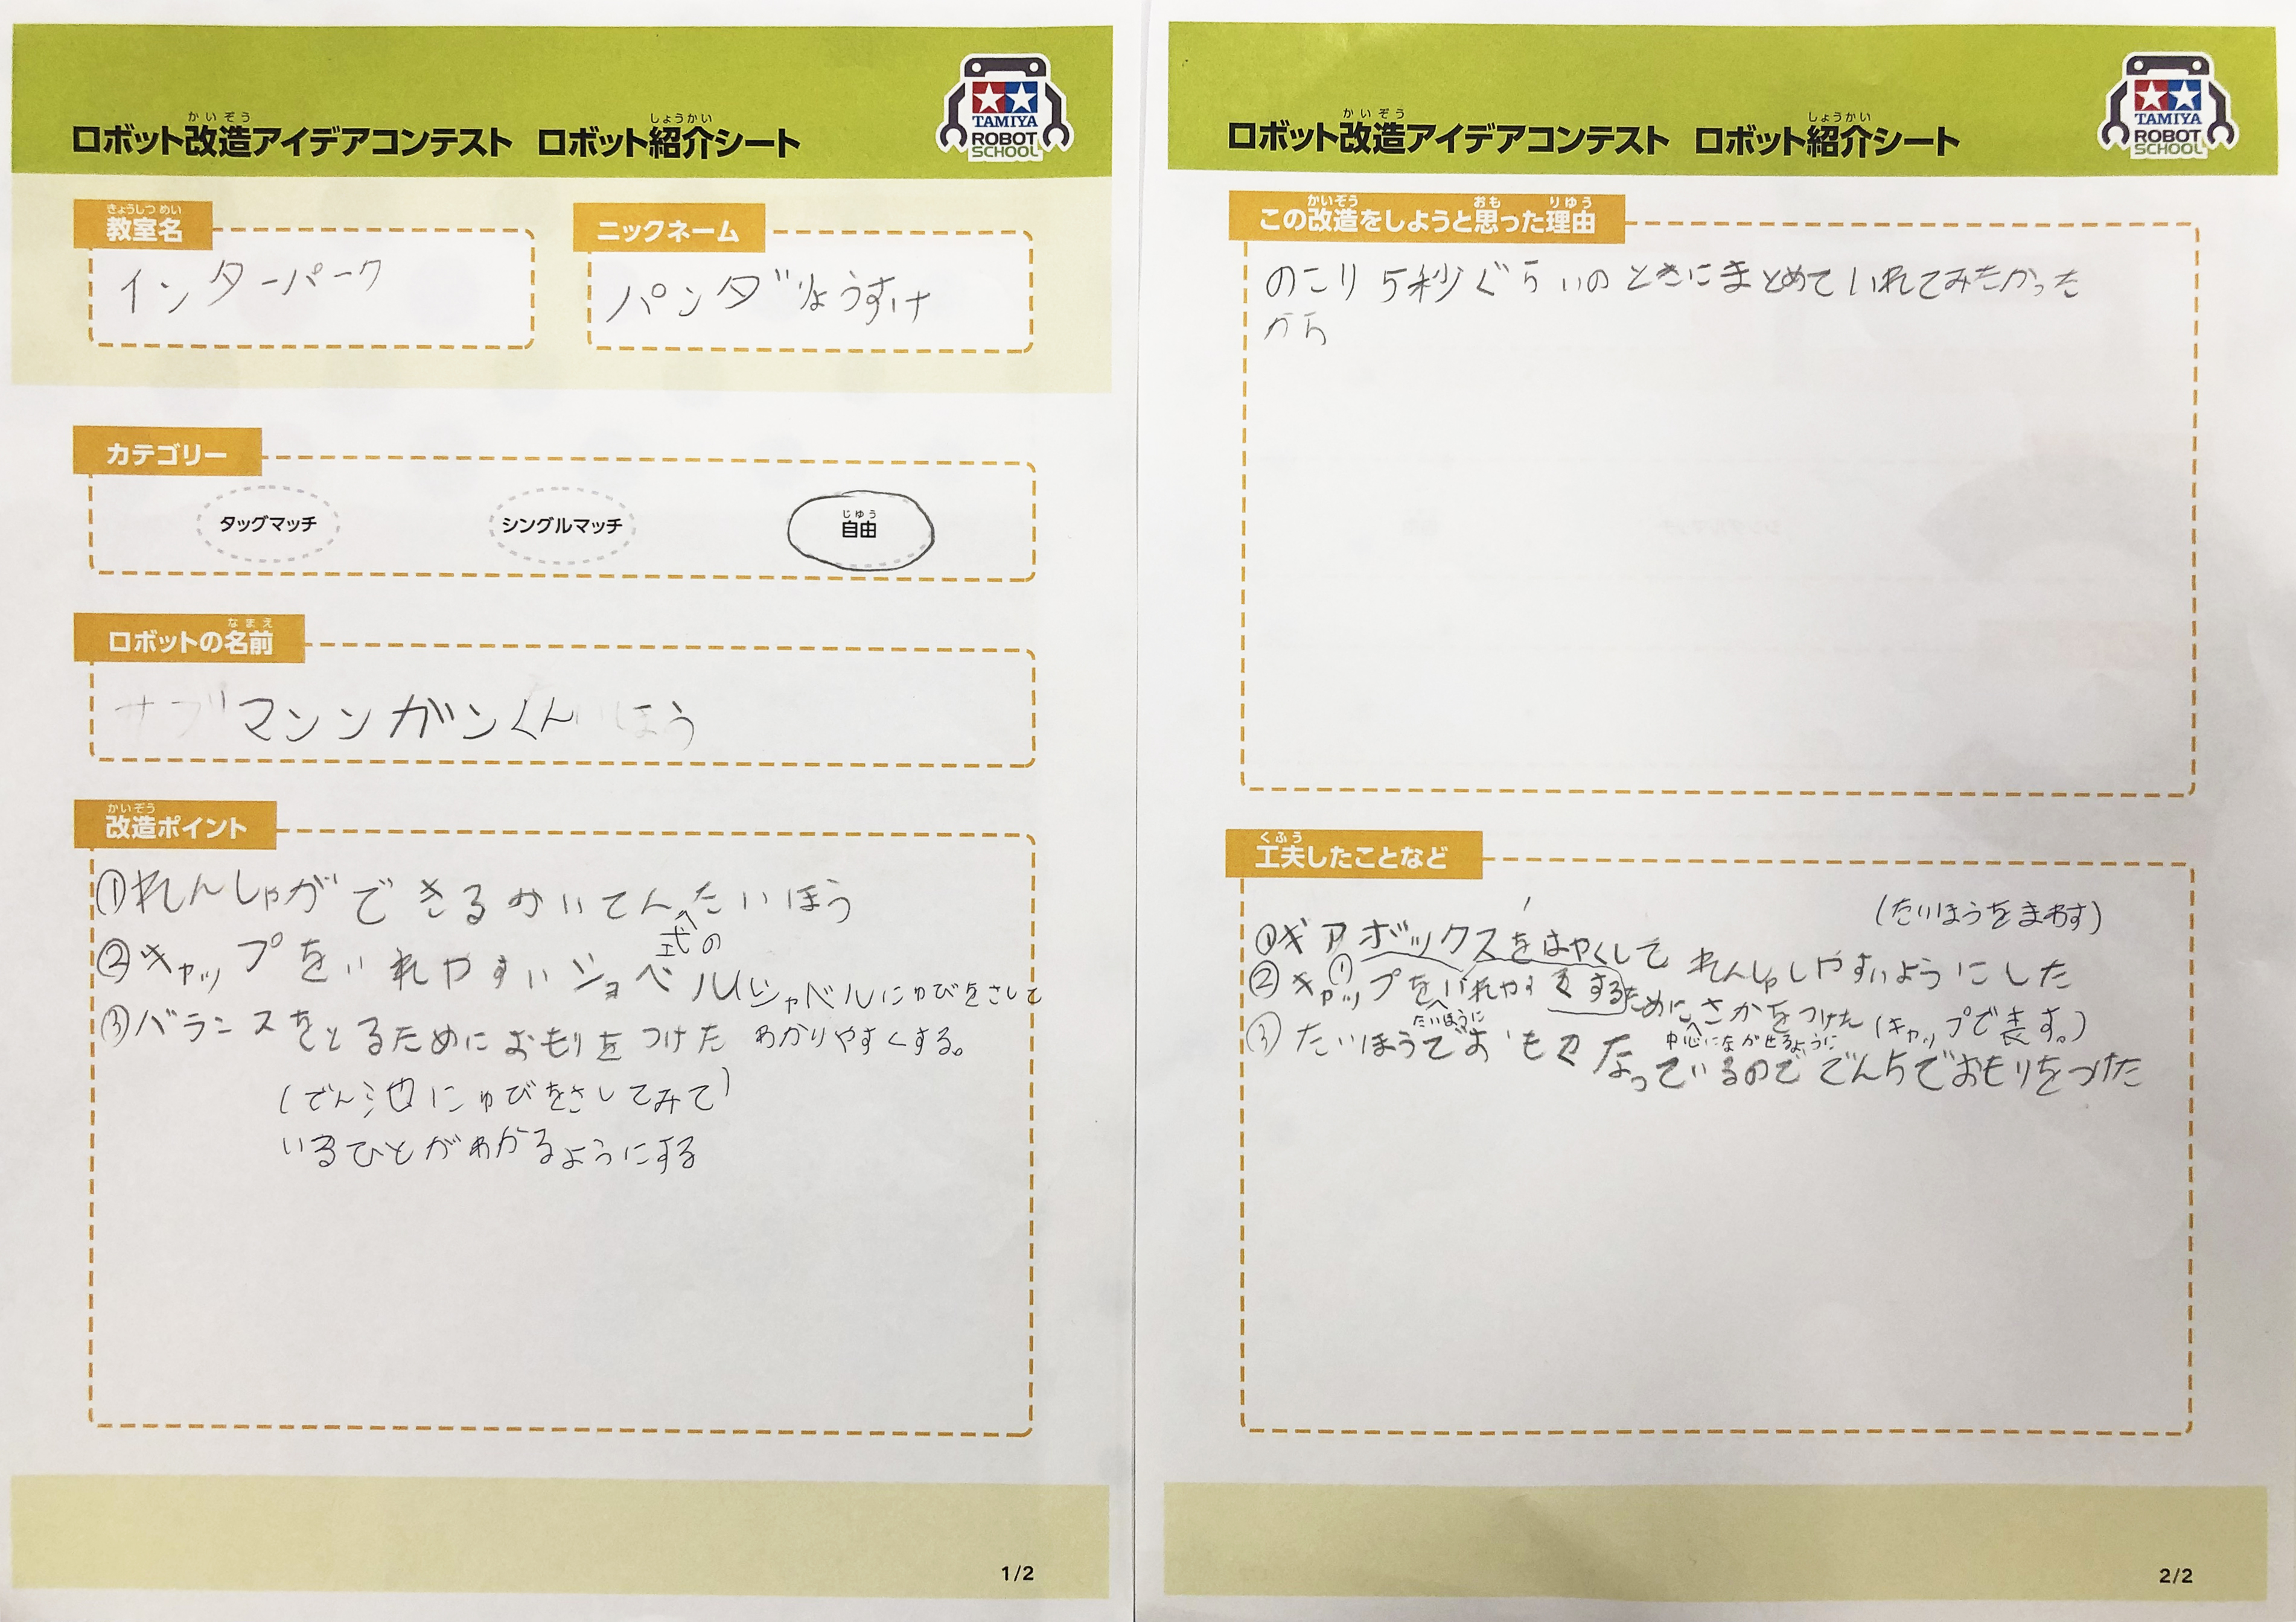 かいぞう
ロボット改造アイデアコンテスト
しょうかい
ロボット紹介シート
TAMIYA
ROBOT
SCHOOL
きょうしつ めい
教室名
インターパーク
ニックネーム
パンダりょうすけ
カテゴリー
タッグマッチ
シングルマッチ
じゆう
自由
なまえ
ロボットの名前
サブマシンガンくん ほう
かいぞう
改造ポイント
①れんしゃができるかいてん式のたいほう
②キャップをいれやすいショベル(シャベルにゆびをさして
わかりやすくする。
③バランスをとるためにおもりをつけた
(でん池にゆびをさしてみて)
いるひとがわかるようにする
1/2
かいぞう
ロボット改造アイデアコンテスト
しょうかい
ロボット紹介シート
TAMIYA
ROBOT
SCHOOL
かいぞう おも りゆう
この改造をしようと思った理由
のこり5秒ぐらいのときにまとめていれてみたかった
から
くふう
工夫したことなど
(たいほうをまわす)
①ギアボックスをはやくしてれんしゃしやすいようにした
②キャップをたいほうにいれやすくするために中心にながせるようにさかをつけた(キャップで表す。)
③たいほうでおもくなっているのででんちでおもりをつけた
2/2